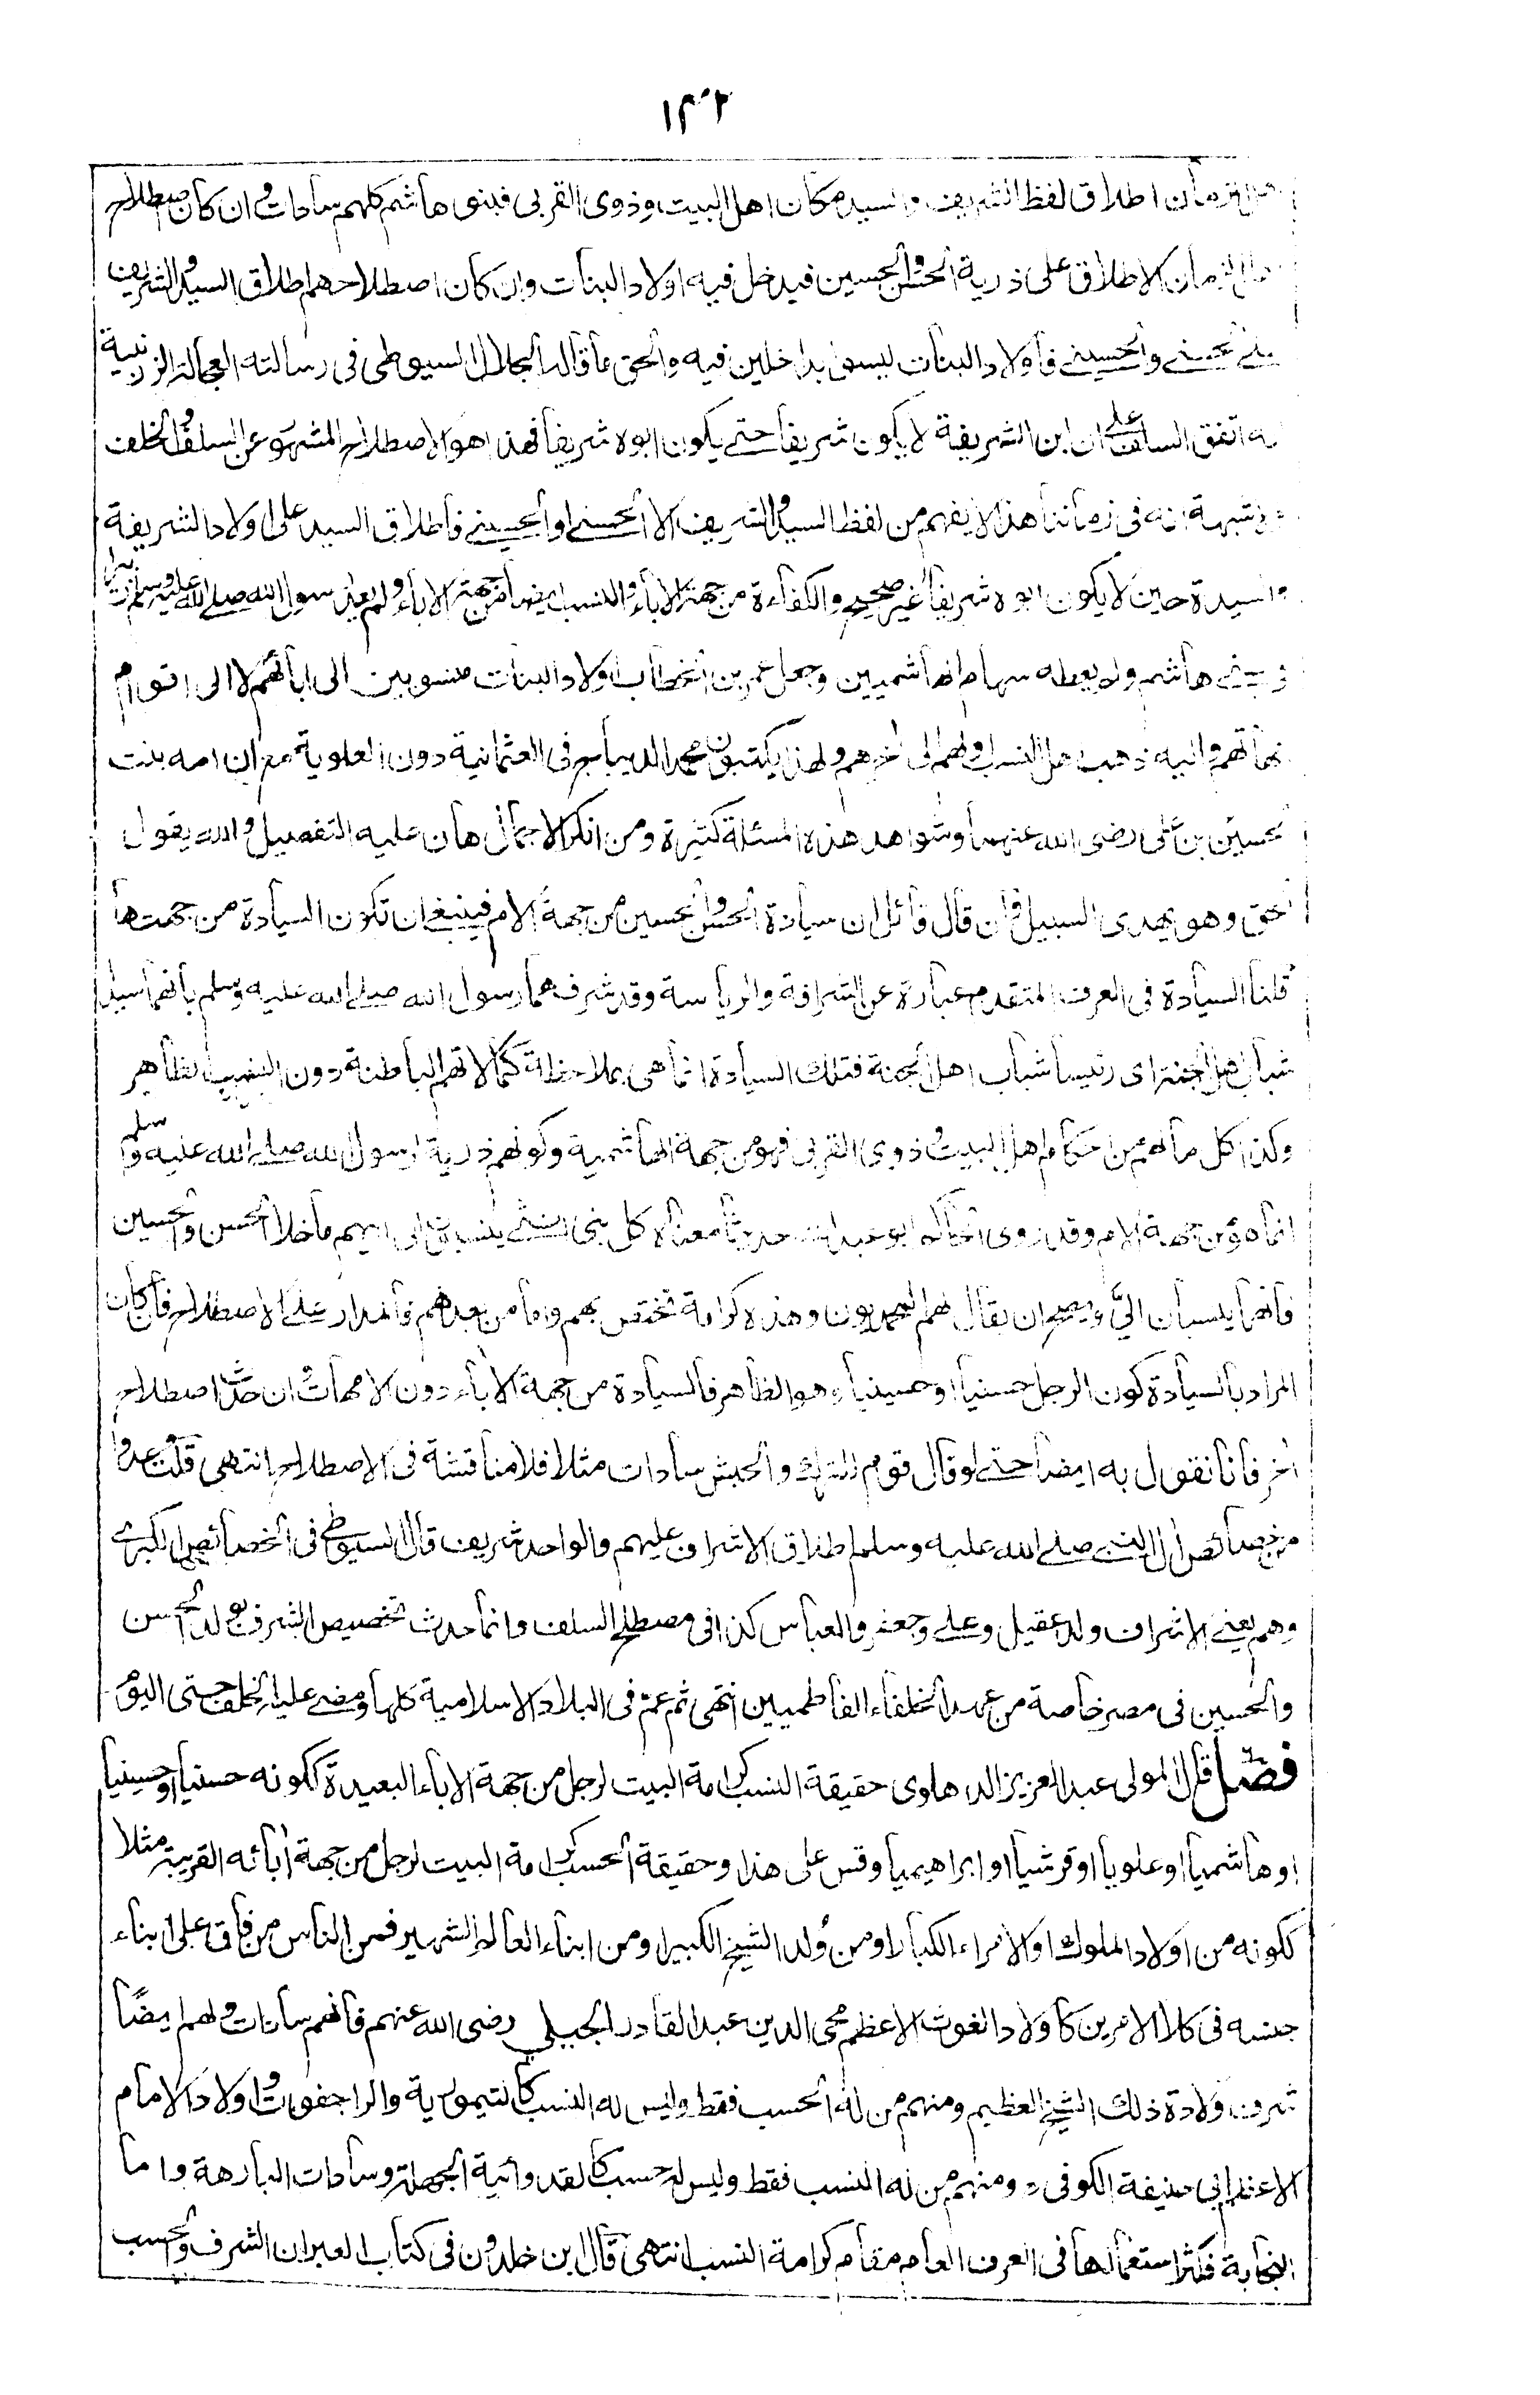 ١٣٠٢
الزمان اطلاق لفظ الشريف والسيد مكان اهل البيت وذوى القربى فبنو هاشم كلهم سادات وان كان اصطلاح
الزمان الاطلاق على ذرية الحسن والحسين فيدخل فيه اولاد البنات وان كان اصطلاحهم اطلاق السيد والشريف
على الحسنى والحسينى فأولاد البنات ليسوا بداخلين فيه والحق ما قاله الجلال السيوطى فى رسالته العجالة الزرنبية
انه اتفق السلف على ان ابن الشريفة لا يكون شريفا حتى يكون ابوه شريفا فهذا هو الاصطلاح المشهور عن السلف والخلف
ولا شبهة انه فى زماننا هذا لا يفهم من لفظ السيد والشريف الا الحسنى او الحسينى فاطلاق السيد على اولاد الشريفة
والسيدة حين لا يكون ابوه شريفا غير صحيح والكفاءة من جهة الاباء والنسب ايضا من جهة الاباء ولم يعد رسول الله صلى الله عليه وسلم
فى بنى هاشم ولم يعطه سهام الهاشميين وجعل عمر بن الخطاب اولاد البنات منسوبين الى ابائهم لا الى اقوام
امهاتهم واليه ذهب اهل النسب اولهم الى اخرهم ولهذا يكتبون محمد الديباج فى العثمانية دون العلوية مع ان امه بنت
الحسين بن على رضى الله عنهما وشواهد هذه المسئلة كثيرة ومن انكر الاجمال هان عليه التفصيل والله يقول
الحق وهو يهدى السبيل فان قال قائل ان سيادة الحسن والحسين من جهة الام فينبغى ان تكون السيادة من جهتها
قلنا السيادة فى العرف المتقدم عبارة عن الشرافة والرياسة وقد شرفهما رسول الله صلى الله عليه وسلم بانهما سيدا
شباب اهل الجنة اى رئيسا شباب اهل الجنة فتلك السيادة انما هى بملاحظة كمالاتهم الباطنة دون النسب الظاهر
وكذا كل ما لهم من احكام اهل البيت وذوى القربى فهو من جهة الهاشمية وكونهم ذرية رسول الله صلى الله عليه وسلم
انما هو من جهة الام وقد روى الحاكم ابو عبد الله حديثا معناه كل بنى انثى ينسبون الى ابيهم ما خلا الحسن والحسين
فانهما ينسبان الىّ ويصح ان يقال لهم المحمديون وهذه كرامة تختص بهم واما من بعدهم فالمدار على الاصطلاح فان كان
المراد بالسيادة كون الرجل حسنيا او حسينيا وهو الظاهر فالسيادة من جهة الاباء دون الامهات وان حدث اصطلاح
اخر فانا نقول به ايضا حتى لو قال قوم الترك والحبش سادات مثلا فلا مناقشة فى الاصطلاح انتهى قلت وعدوا
من خصائص ال النبى صلى الله عليه وسلم اطلاق الاشراف عليهم والواحد شريف قال السيوطى فى الخصائص الكبرى
وهم يعنى الاشراف ولد عقيل وعلى وجعفر والعباس كذا فى مصطلح السلف وانما حدث تخصيص الشرف بولد الحسن
والحسين فى مصر خاصة من عهد الخلفاء الفاطميين انتهى ثم عم فى البلاد الاسلامية كلها ومضى عليه الخلف حتى اليوم
فصل قال المولى عبد العزيز الدهلوى حقيقة النسب كرامة البيت لرجل من جهة الاباء البعيدة ككونه حسنيا او حسينيا
او هاشميا او علويا او قرشيا او ابراهيميا وقس على هذا وحقيقة الحسب كرامة البيت لرجل من جهة ابائه القريبة مثلا
ككونه من اولاد الملوك او الامراء الكبار او من ولد الشيخ الكبير او من ابناء العالم الشهير فمن الناس من فاق على ابناء
جنسه فى كلا الامرين كأولاد الغوث الاعظم محى الدين عبد القادر الجيلى رضى الله عنهم فانهم سادات ولهم ايضًا
شرف ولادة ذلك الشيخ العظيم ومنهم من له الحسب فقط وليس له النسب كالتيمورية والراجفوت واولاد الامام
الاعظم ابى حنيفة الكوفى ومنهم من له النسب فقط وليس له حسب كالقدوائية الجهلة وسادات البارهة واما
النجابة فكثر استعمالها فى العرف العام مقام كرامة النسب انتهى قال ابن خلدون فى كتاب العبر ان الشرف والحسب